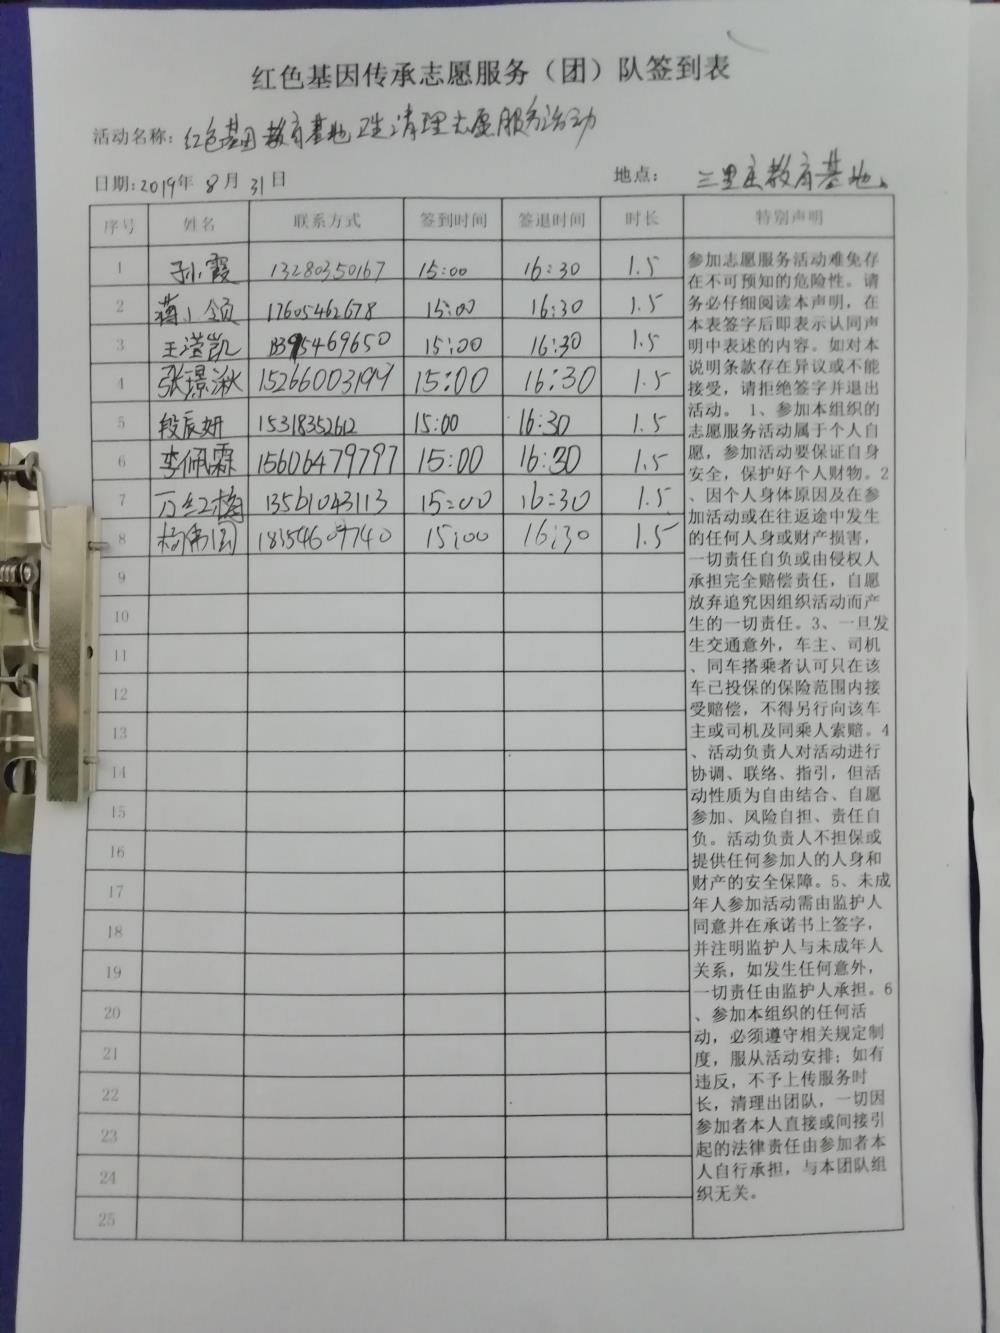 红色基因传承志愿服务（团）队签到表
活动名称：红色基因教育基地卫生清理志愿服务活动
日期：2019年 8月 31日 地点： 三里庄教育基地
序号 姓名 联系方式 签到时间 签退时间 时长 特别声明
1 孙霞 13280350167 15:00 16:30 1.5
2 蒋小领 17605462678 15:00 16:30 1.5
3 王滢凯 5469650 15:00 16:30 1.5
4 张璟湫 15266003199 15:00 16:30 1.5
5 段辰妍 15318352612 15:00 16:30 1.5
6 李佩霖 15606479797 15:00 16:30 1.5
7 万红梅 13561043113 15:00 16:30 1.5
8 杨伟国 18154609740 15:00 16:30 1.5
9
10
11
12
13
14
15
16
17
18
19
20
21
22
23
24
25
参加志愿服务活动难免存
在不可预知的危险性。请
务必仔细阅读本声明，在
本表签字后即表示认同声
明中表述的内容。如对本
说明条款存在异议或不能
接受，请拒绝签字并退出
活动。 1、参加本组织的
志愿服务活动属于个人自
愿，参加活动要保证自身
安全，保护好个人财物。2
、因个人身体原因及在参
加活动或在往返途中发生
的任何人身或财产损害，
一切责任自负或由侵权人
承担完全赔偿责任，自愿
放弃追究因组织活动而产
生的一切责任。3、一旦发
生交通意外，车主、司机
、同车搭乘者认可只在该
车已投保的保险范围内接
受赔偿，不得另行向该车
主或司机及同乘人索赔。4
、活动负责人对活动进行
协调、联络、指引，但活
动性质为自由结合、自愿
参加、风险自担、责任自
负。活动负责人不担保或
提供任何参加人的人身和
财产的安全保障。5、未成
年人参加活动需由监护人
同意并在承诺书上签字，
并注明监护人与未成年人
关系，如发生任何意外，
一切责任由监护人承担。6
、参加本组织的任何活
动，必须遵守相关规定制
度，服从活动安排；如有
违反，不予上传服务时
长，清理出团队，一切因
参加者本人直接或间接引
起的法律责任由参加者本
人自行承担，与本团队组
织无关。